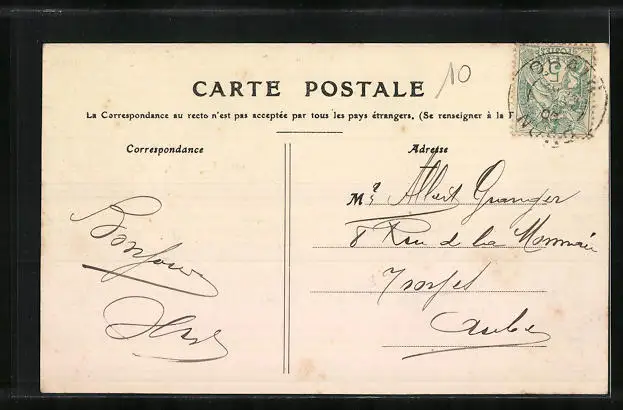 10
CARTE POSTALE
La Correspondance au recto n'est pas acceptée par tous les pays étrangers. (Se renseigner à la
Correspondance
Adresse
Bonjour
Mr Albert Granger
8 Rue de la Monnaie
Troyes
Aube